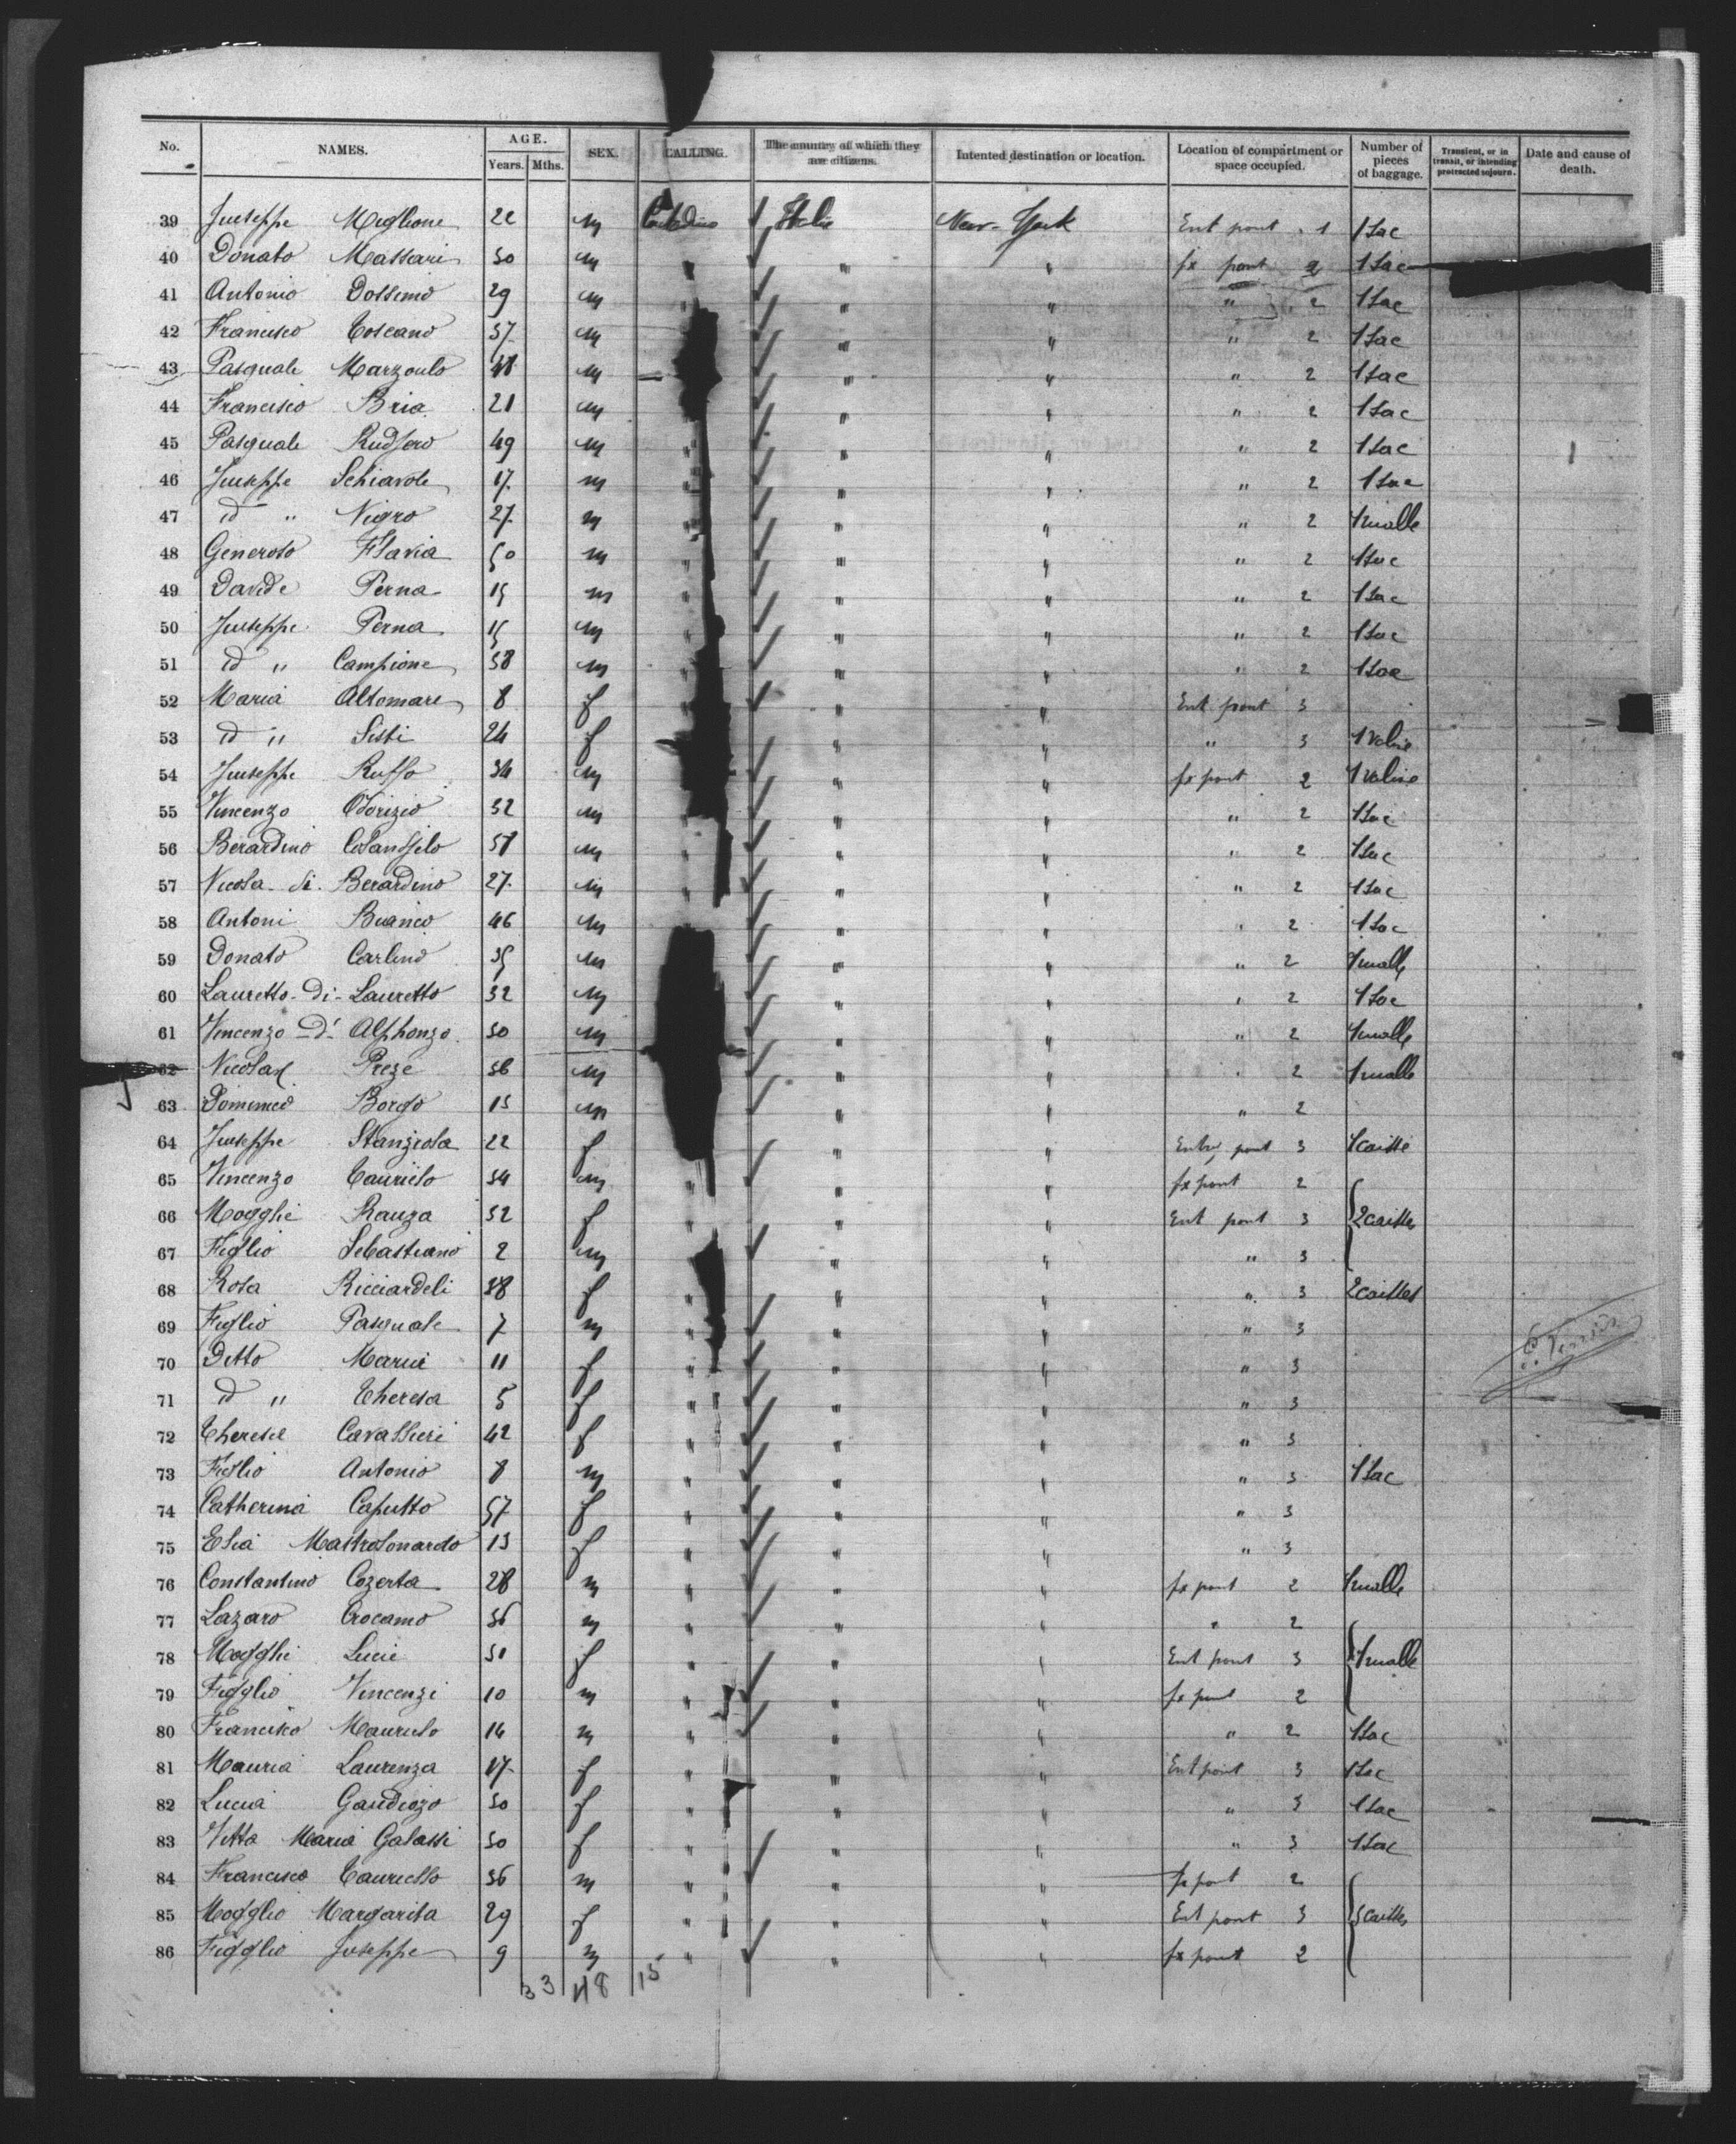 No. NAMES. AGE. Years. Mths. SEX. CALLING. The country of which they are citizens. Intented destination or location. Location of compartment or space occupied. Number of pieces of baggage. Transient, or in transit, or intending protracted sojourn. Date and cause of death.
39 Juseppe Miglione 22 m Italie New-York Ent pont 1 1 Sac
40 Donato Massari 30 m " " " fx pont 2 1 Sac
41 Antonio 29 m " " " " 2 1 Sac
42 Francisco Toscano 37 m " " " " 2 1 Sac
43 Pasquale Marzoulo 48 m " " " 2 1 Sac
44 Francisco Bria 21 m " " " 2 1 Sac
45 Pasquale 49 m " " " " 2 1 Sac
46 Juseppe Schiavole 17 m " " " " 2 1 Sac
47 id " Nigro 27 m " " " " 2 1 malle
48 Generoso Flavia 50 m " " " " 2 1 Sac
49 Davide Perna 15 m " " " " 2 1 Sac
50 Juseppe Perna 15 m " " " " 2 1 Sac
51 id " Campione 38 m " " " " 2 1 Sac
52 Maria Altomare 8 f " " Ent pont 3
53 id " Sisti 24 f " " " 3 1 Valise
54 Juseppe Ruffo 34 m " " fx pont 2 1 Valise
55 Vincenzo Odorizio 32 m " " " 2 1 Sac
56 Berardino 37 m " " " " 2 1 Sac
57 Nicola di Berardino 27 m " " " " 2 1 Sac
58 Antoni Buanico 46 m " " " " 2 1 Sac
59 Donato Carlino 35 m " " " 2 1 malle
60 Lauretto-Di-Lauretto 32 m " " " 2 1 Sac
61 Vincenzo D'Alphonzo 30 m " " " 2 1 malle
62 Preze 36 m " " " 2 1 malle
63 Domenico Borgo 13 m " " " 2
64 Juseppe Stanziola 22 f " Entre pont 3 1 caisse
65 Vincenzo Tauriello 34 m " " " fx pont 2
66 Mogglie Rauza 32 f " " Ent pont 3 2 caisses
67 Figlio Sebastiano 2 m " " " 3
68 Rosa Ricciardeli 38 f " " " " 3 2 caisses
69 Figlio Pasquale 7 m " " " " 3
70 Ditto Marie 11 f " " " " 3
71 id " Theresa 5 f " " " " 3
72 Therese Cavallieri 42 f " " " " 3
73 Figlio Antonio 8 m " " " " 3 1 Sac
74 Catherina Caputto 57 f " " " " 3
75 Elia Mastrolonardo 13 f " " " " 3
76 Constantino Cozerta 28 m " " " fx pont 2 1 malle
77 Lazaro Crocamo 36 m " " " " 2
78 Mogglie Lucie 31 f " " " Ent pont 3 1 malle
79 Figglio Vincenzi 10 m " " " fx pont 2
80 Francisco Maurielo 14 m " " " " 2 1 Sac
81 Mauria Laurenza 17 f " " " Ent pont 3 1 Sac
82 Lucia Gaudiozo 30 f " " " " 3 1 Sac
83 Vitta Maria Galassi 30 f " " " " 3 1 Sac
84 Francisco Tauriello 36 m " " " fx pont 2
85 Mogglie Margarita 29 f " " " Ent pont 3 3 caisses
86 Figglio Juseppe 9 m " " " fx pont 2
33 48 15